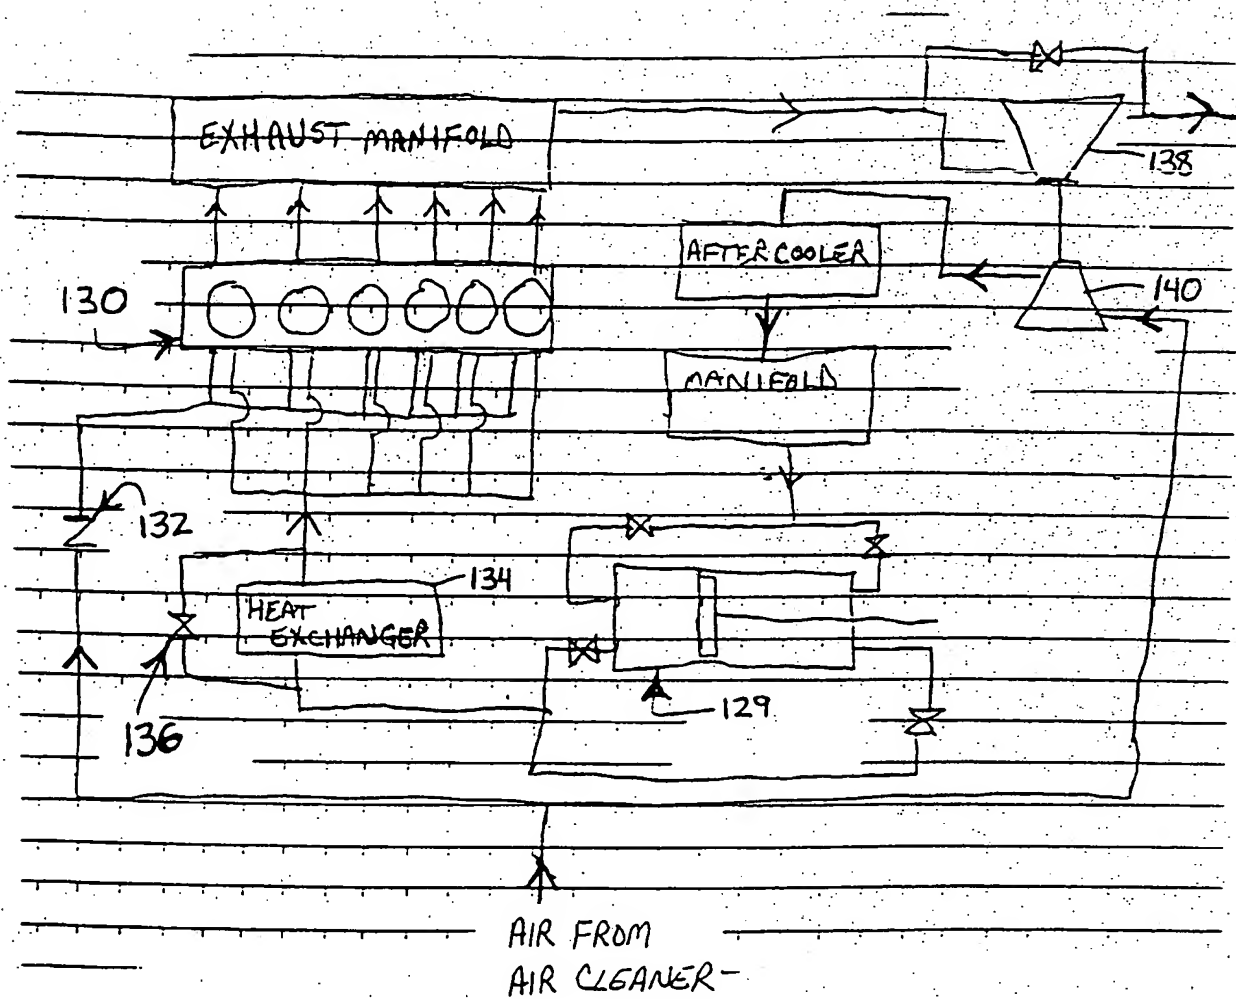 EXHAUST MANIFOLD
138
AFTERCOOLER
130
140
MANIFOLD
132
134
HEAT
EXCHANGER
129
136
AIR FROM
AIR CLEANER-